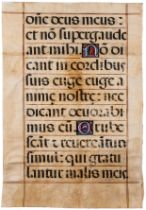 one deus meus:
et nō supergaude
ant mihi Nō di
cant in cordibus
suis euge euge a
nime nostre: nec
dicant deuorabi
mus eū Erube
scāt z reuereātur
simul: qui gratu
lantur malis meis